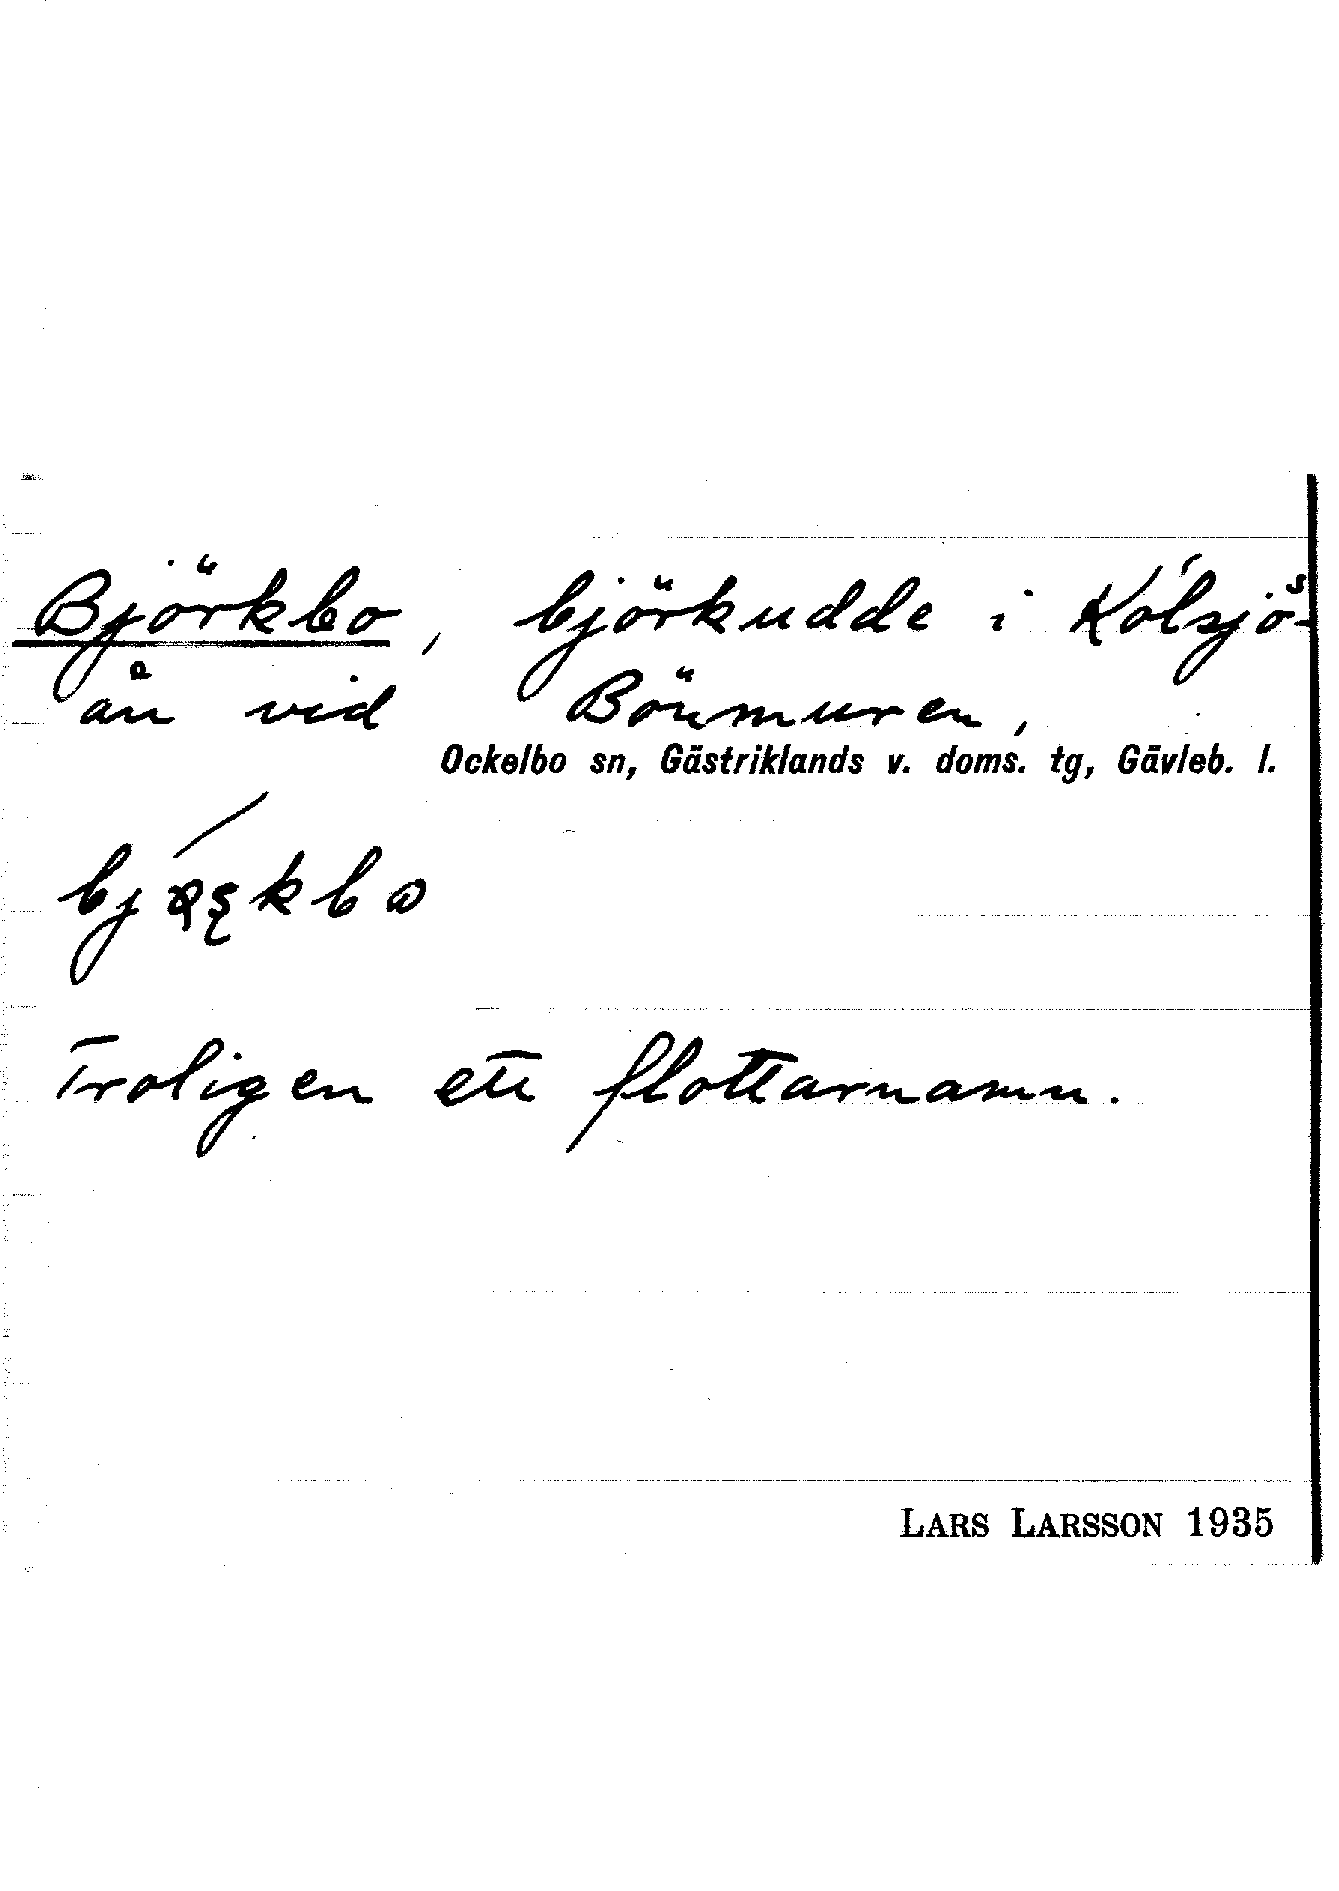 Björkbo, björkudde i Kólsjö-
ån vid Bönmuren,
Ockelbo sn, Gästriklands v. doms. tg, Gävleb. l.
Troligen ett flottarnamn.
LARS LARSSON 1935